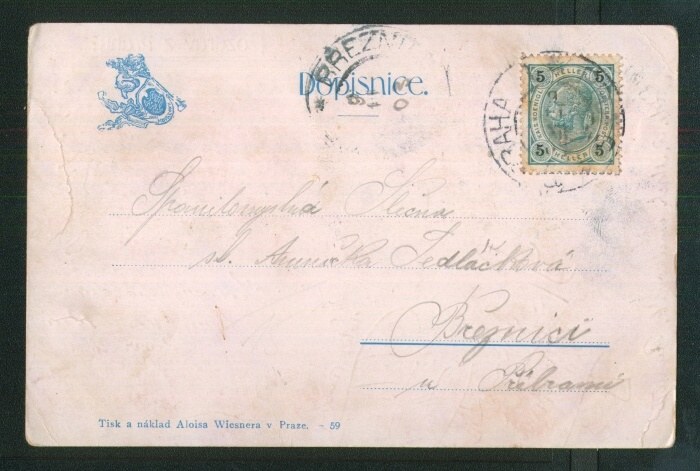 BŘEZNI
Dopisnice.
PRAHA
5 HELLER 5
5 HELLER 5
Spanilomyslná Slečna
sl. Anninka Sedláčková
Březnici
u Příbrami
Tisk a náklad Aloisa Wiesnera v Praze. - 59